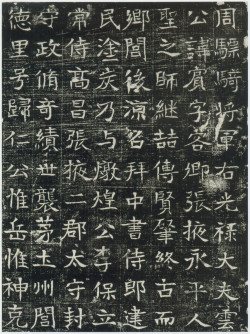 周驃騎將軍右光祿大夫雲
公諱賓字客卿張掖永平人
聖之師継喆傳賢肇終古而
鄉閭後涼呂拜中書侍郎建
民塗炭乃与燉煌公李保立
常侍高昌張掖二郡太守封
守政脩奇績世襲茅土州閭
德里号歸仁公惟岳惟神克